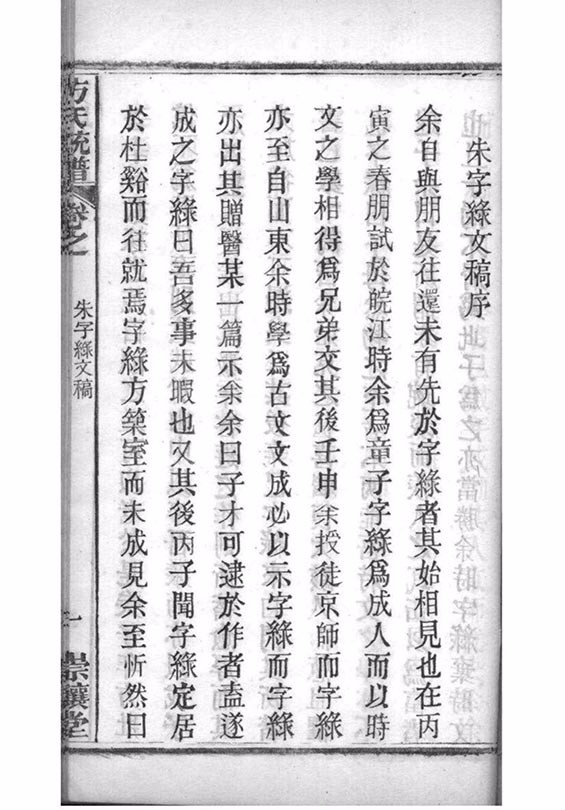 朱字綠文稿序
余自與朋友往還未有先於字綠者其始相見也在丙
寅之春朋試於皖江時余爲童子字綠爲成人而以時
文之學相得爲兄弟交其後壬申余授徒京師而字綠
亦至自山東余時學爲古文文成必以示字綠而字綠
亦出其贈醫某一篇示余余曰子才可逮於作者盍遂
成之字綠曰吾多事未暇也又其後丙子聞字綠定居
於杜谿而往就焉字綠方築室而未成見余至忻然曰
方氏統譜
卷之
朱字綠文稿
一
崇讓堂